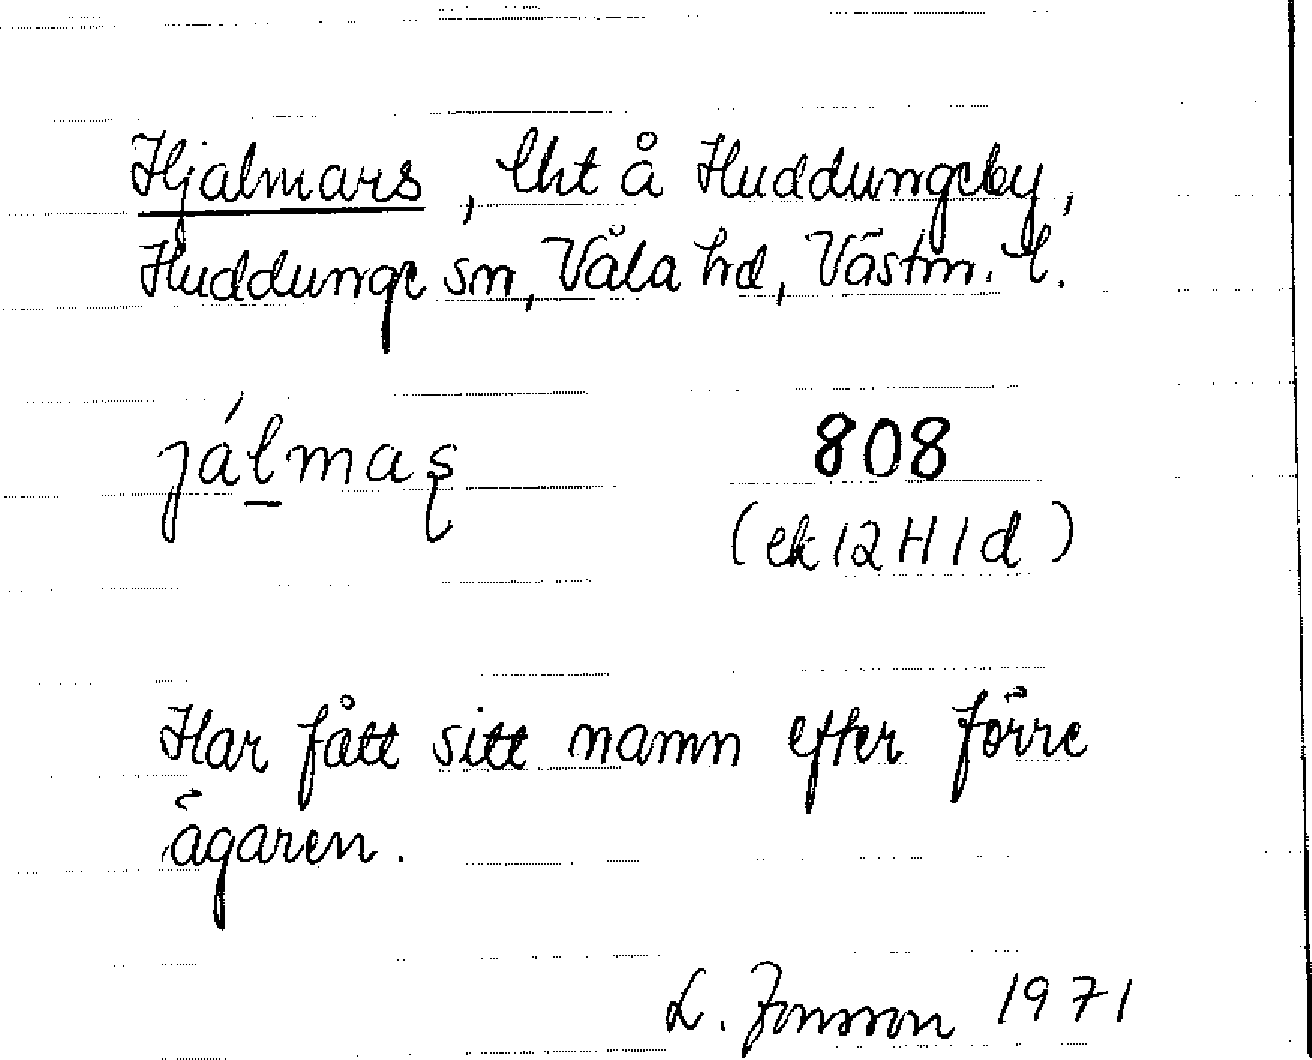 Hjalmars, lht å Huddungeby,
Huddunge sn, Våla hd, Västm. l.
jálmaş 808
(ek 12 H 1 d)
Har fått sitt namn efter förre
ägaren.
L. Jonsson 1971